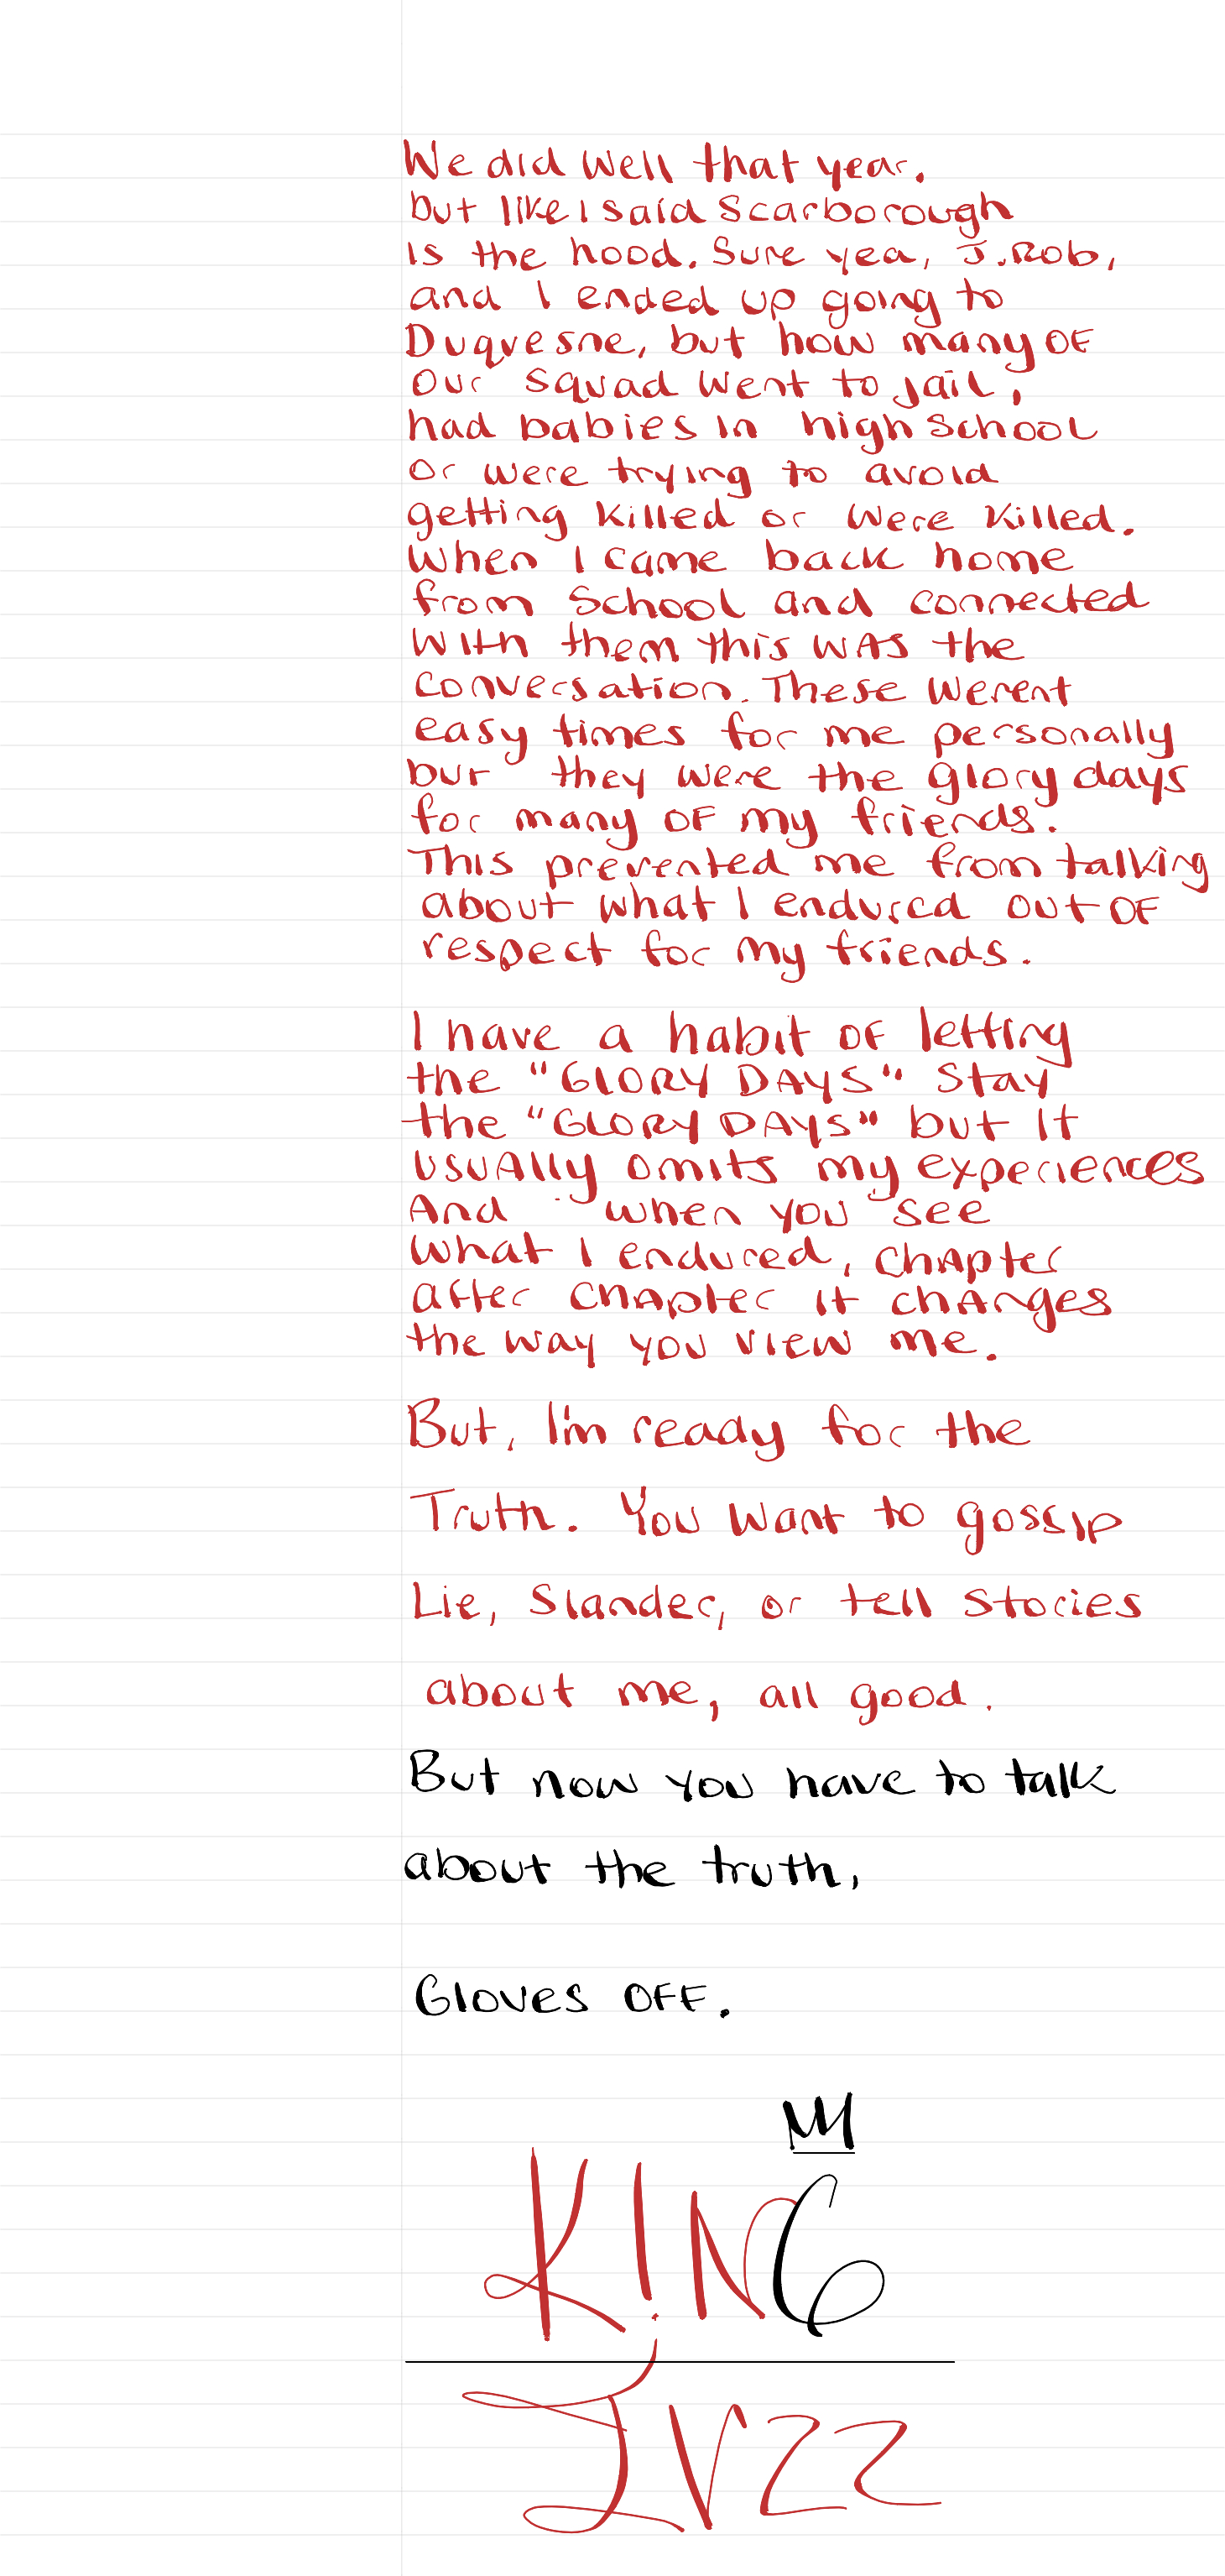 We did well that year.
but like I said Scarborough
is the hood. Sure yea, J.Rob,
and I ended up going to
Duquesne, but how many OF
our squad went to jail,
had babies in high school
or were trying to avoid
getting killed or were killed.
When I came back home
from school and connected
with them this was the
conversation. These werent
easy times for me personally
but they were the glory days
for many OF my friends.
This prevented me from talking
about what I endured out OF
respect for my friends.
I have a habit OF letting
the "GLORY DAYS" stay
the "GLORY DAYS" but it
usually omits my experiences
And when you see
what I endured, chapter
after chapter it changes
the way you view me.
But, I'm ready for the
Truth. You want to gossip
Lie, Slander, or tell stories
about me, all good.
But now you have to talk
about the truth,
Gloves OFF.
K!NG
JV22